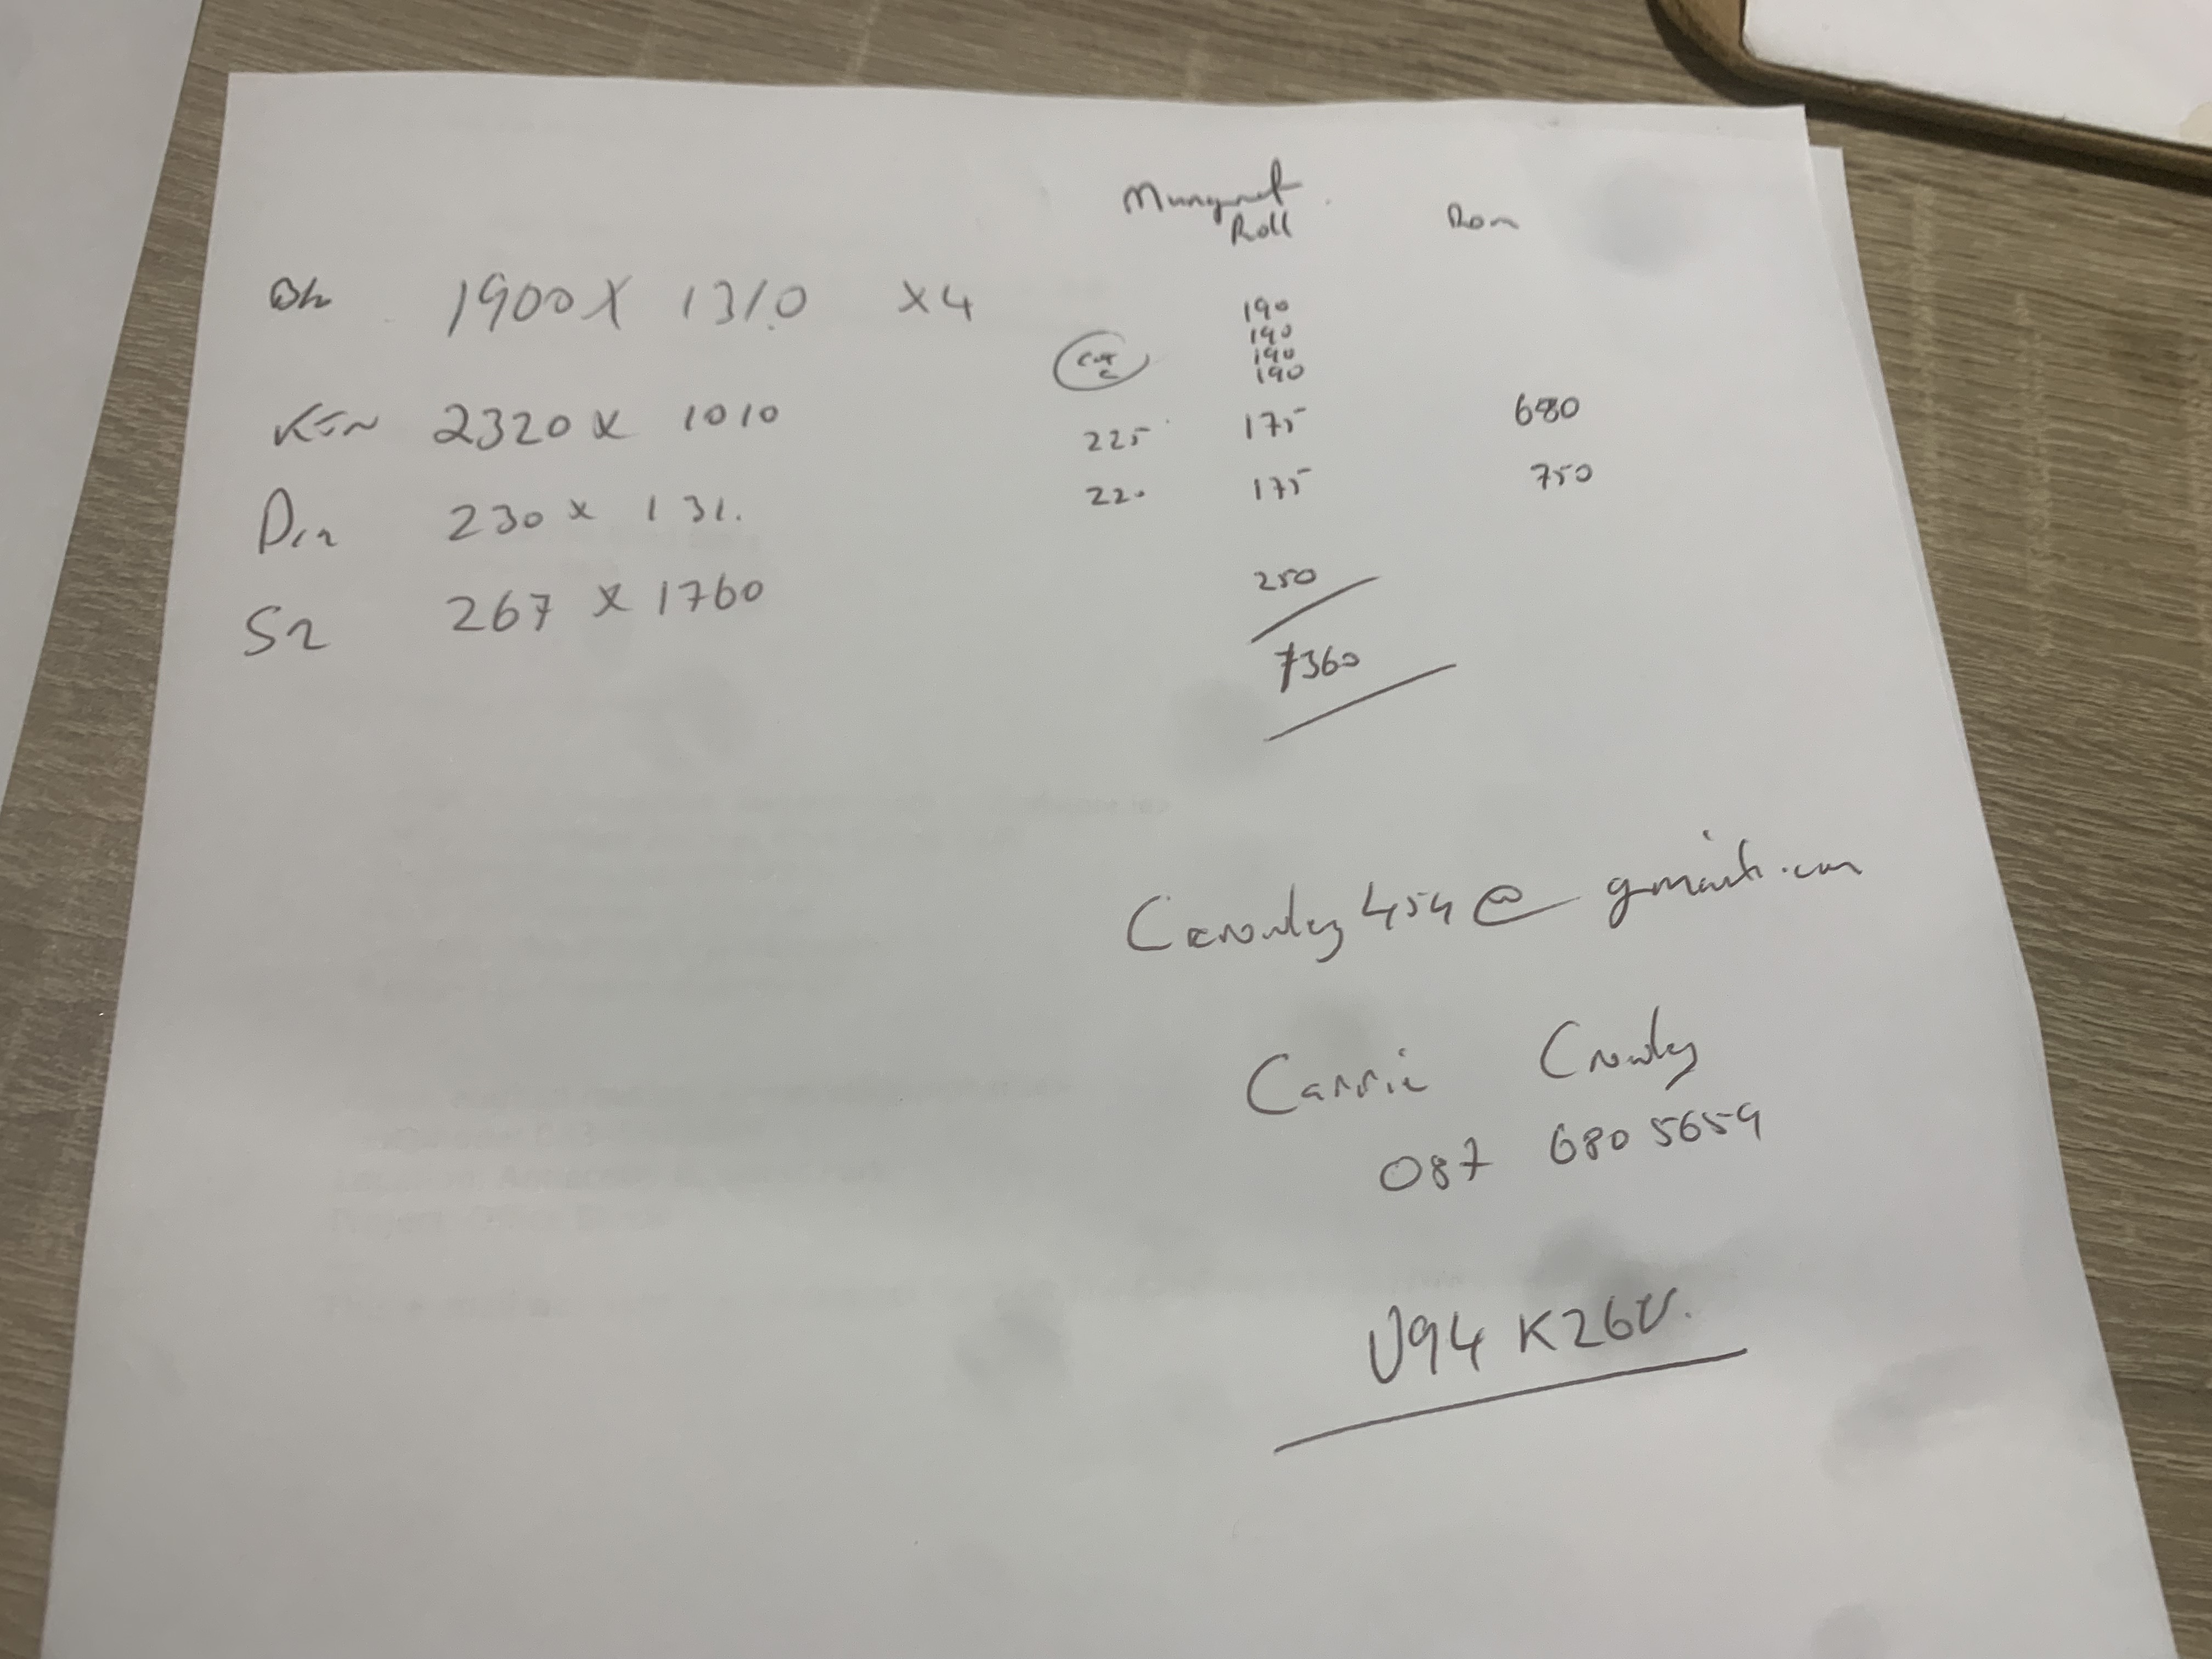 Mungret
Roll
Rom
Bh 1900 X 1310 x4
190
190
190
190
Kin 2320 x 1010 225 175 680
Din 230 x 131. 220 175 750
S2 267 x 1760
250
7360
Ccrowley454@gmail.com
Carrie Crowley
087 680 5659
V94 K26V.